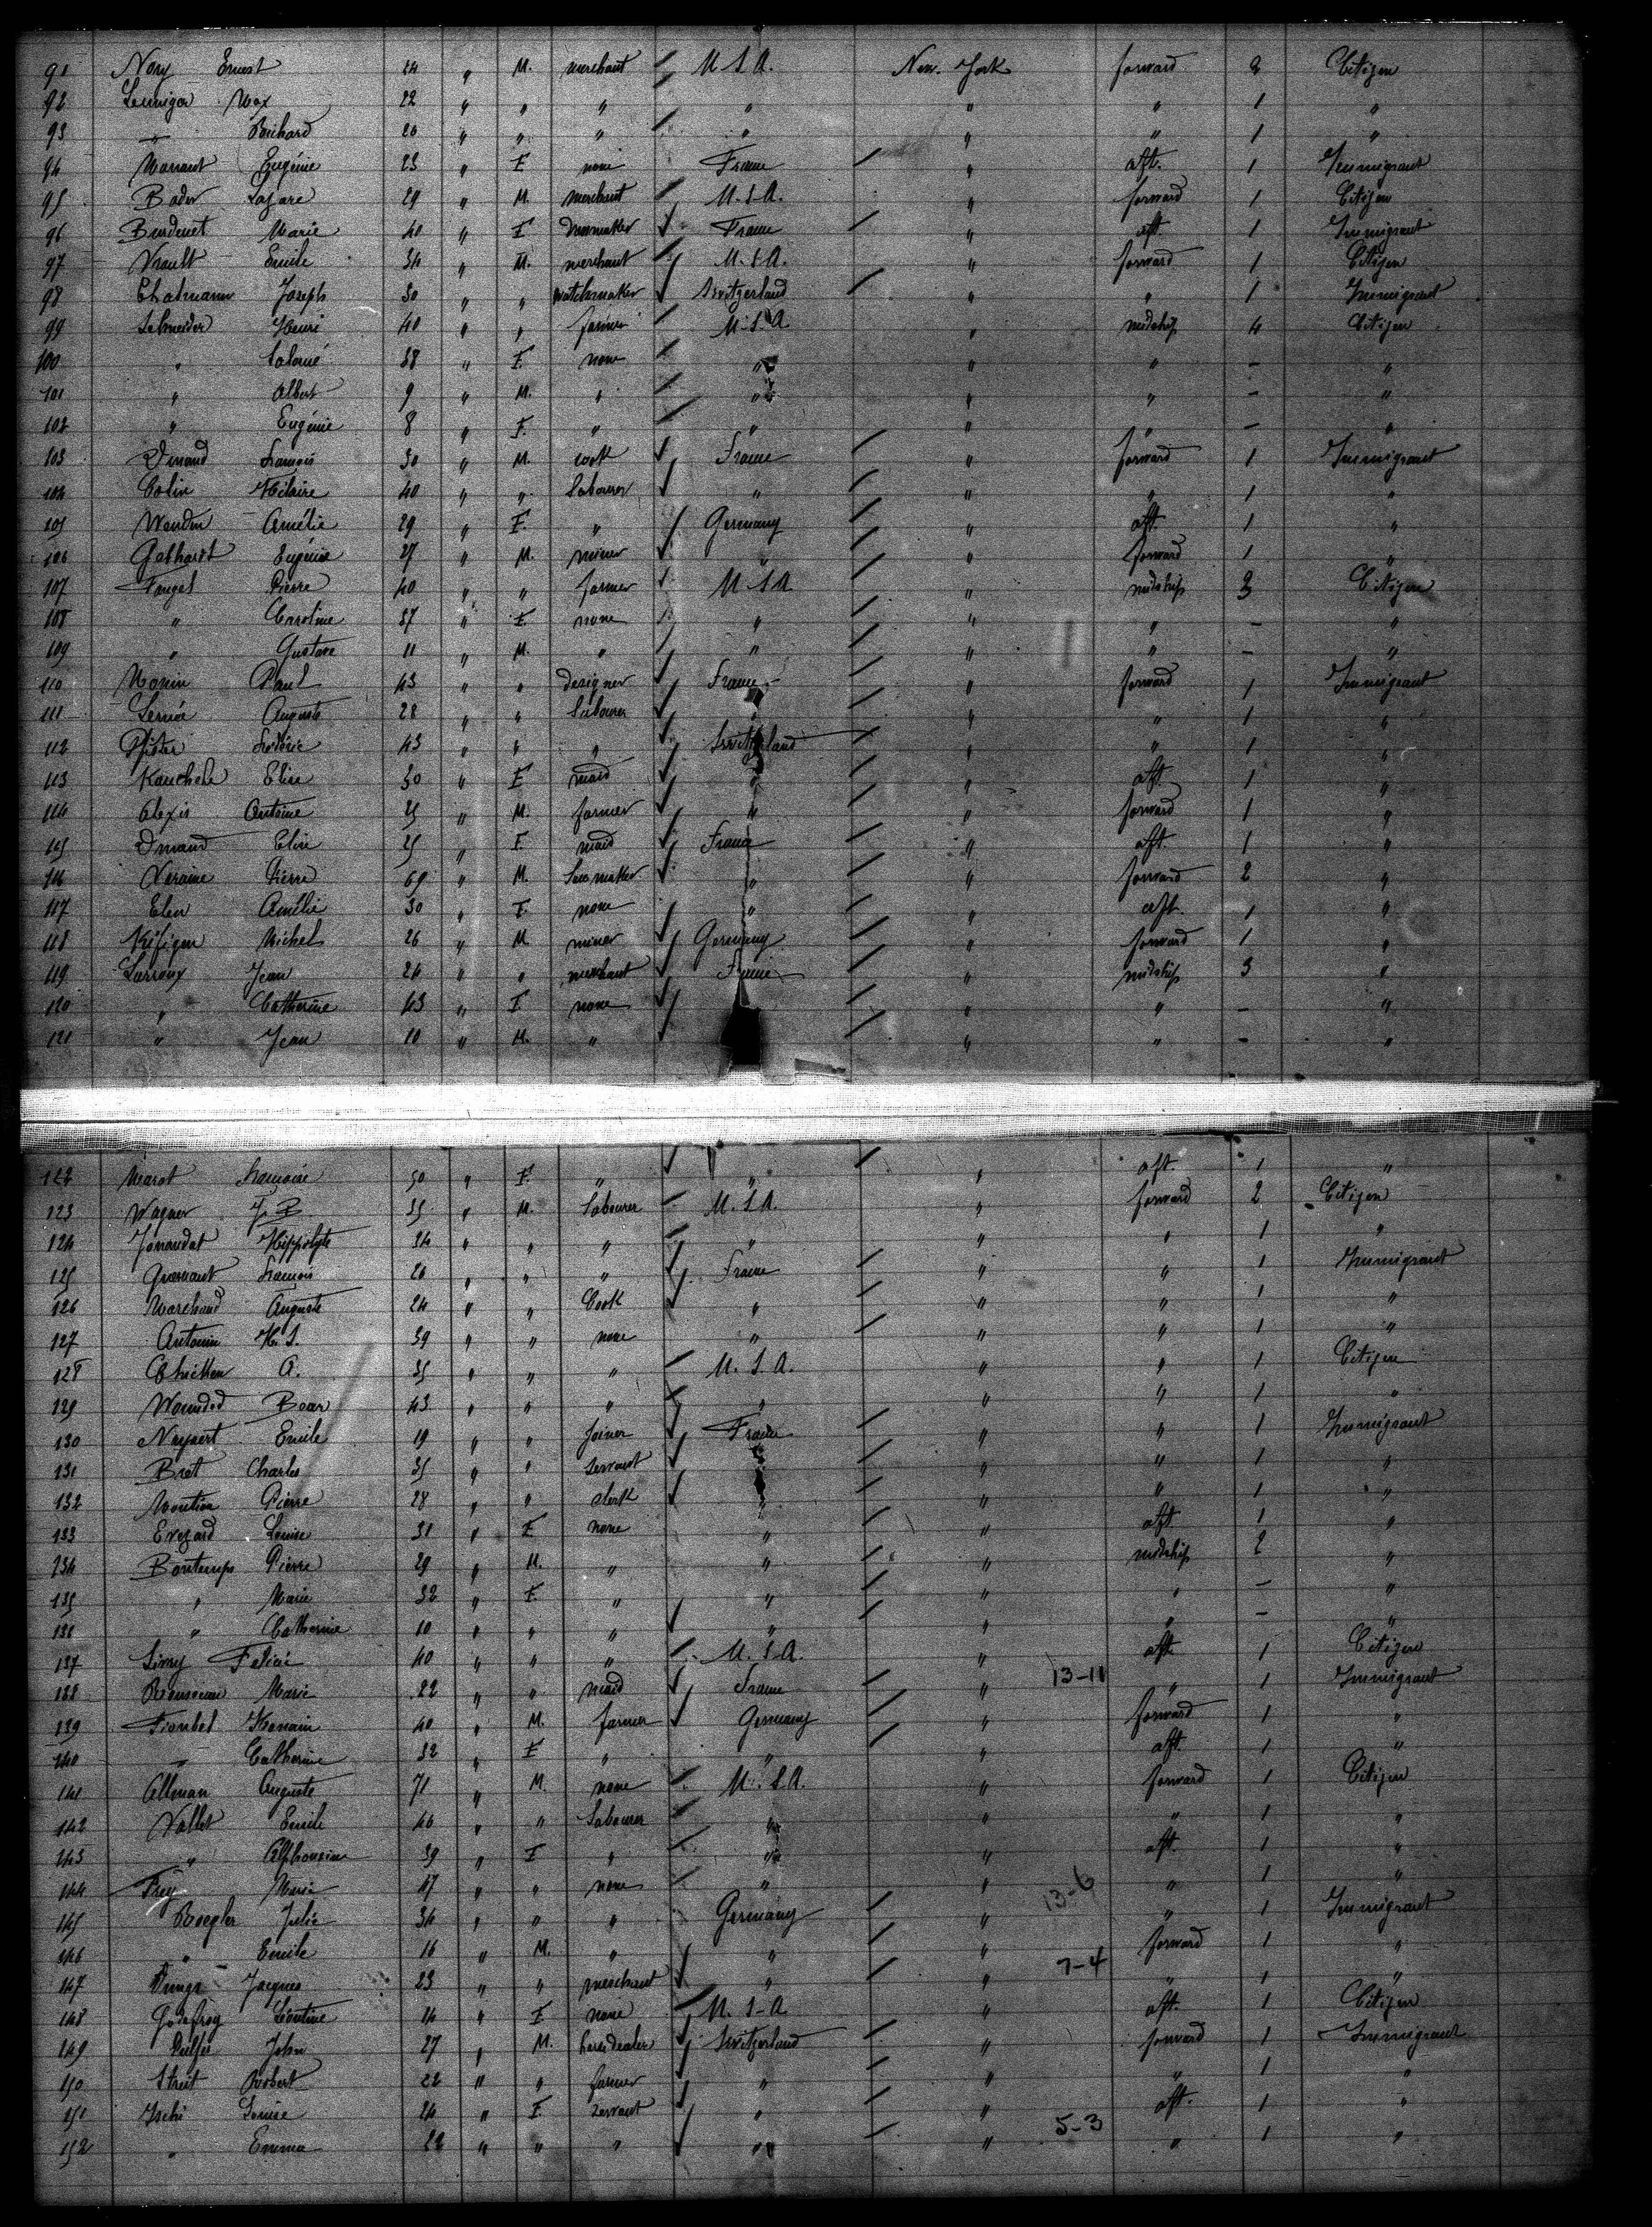 91 Nory Ernest 24 " M. merchant U.S.A. New-York forward 2 Citizen
92 Max 22 " " " " " " 1 "
93 " Richard 20 " " " " " " 1 "
94 Eugénie 23 " F. none France " aft. 1 Immigrant
95 Bader Lazare 29 " M. merchant U.S.A. " forward 1 Citizen
96 Burdenet Marie 40 " F. France " aft 1 Immigrant
97 Emile 34 " M. merchant U.S.A. " forward 1 Citizen
98 Joseph 30 " " watchmaker Switzerland " " 1 Immigrant
99 Schneider Henri 40 " " farmer U.S.A. " midship 4 Citizen
100 " Salomé 38 " F. none " " " - "
101 " Albert 9 " M. " " " " - "
102 " Eugénie 8 " F. " " " " - "
103 François 30 " M. cook France " forward 1 Immigrant
104 Colin Hilaire 40 " " Labourer " " " 1 "
105 Amélie 29 " F. " Germany " aft. 1 "
106 Gebhardt Eugénie 27 " M. miner " " forward 1 "
107 Pierre 40 " " farmer U.S.A. " midship 3 Citizen
108 " Caroline 37 " F. none " " " - "
109 " Gustave 11 " M. " " " " - "
110 Monin Paul 43 " " designer France " forward 1 Immigrant
111 Auguste 28 " " Labourer " " " 1 "
112 Pfister Frédéric 43 " " " Switzerland " " 1 "
113 Elise 30 " F. maid " " aft. 1 "
114 Alexis Antoine 25 " M. farmer " " forward 1 "
115 Elise 25 " F. maid France " aft. 1 "
116 Pierre " M. " " forward 2 "
117 Amélie 30 " F. none " " aft. 1 "
118 Michel 26 " M. miner Germany " forward 1 "
119 Larroux Jean 24 " " merchant France " midship 3 "
120 " Catherine 43 " F. none " " " - "
121 " Jean 10 " M. " " " " - "
122 Marot 50 " F. " " " aft. 1 "
123 Wagner J. B. 35 " M. Labourer U.S.A. " forward 2 Citizen
124 Hippolyte 34 " " " " " " 1 "
125 François 26 " " " France " " 1 Immigrant
126 Marchand Auguste 24 " " Cook " " " 1 "
127 Antonin H. S. 39 " " none " " " 1 "
128 Chicken A. 35 " " " U.S.A. " " 1 Citizen
129 Wounded Bear 43 " " " " " " 1 "
130 Emile 19 " " joiner France " " 1 Immigrant
131 Bret Charles 35 " " servant " " " 1 "
132 Pierre 28 " " clerk " " " 1 "
133 Evezard Louise 31 " F. none " " aft. 1 "
134 Bontemps Pierre 29 " M. " " " midship 2 "
135 " Marie 32 " F. " " " " - "
136 " Catherine 10 " " " " " " - "
137 40 " " " U.S.A. " aft. 1 Citizen
13-11
138 Rousseau Marie 22 " " maid France " " 1 Immigrant
139 40 " M. farmer Germany " forward 1 "
140 " Catherine 32 " F. " " " aft. 1 "
141 Allman Auguste 71 " M. none U.S.A. " forward 1 Citizen
142 Vallet Emile 46 " " Labourer " " " 1 "
143 " Alphonsine 39 " F. " " " aft. 1 "
144 Frey Marie 47 " " none " " " 1 "
13-6
145 Roegler Julie 34 " " " Germany " " 1 Immigrant
146 " Emile 16 " M. " " " forward 1 "
7-4
147 Jacques 23 " " merchant " " " 1 "
148 Godefroy Léontine 14 " F. none U.S.A. " aft. 1 Citizen
149 John 27 " M. Switzerland " forward 1 Immigrant
150 Streit Robert 22 " " farmer " " " 1 "
151 Louise 24 " F. servant " " aft. 1 "
5-3
152 " Emma 22 " " " " " " 1 "